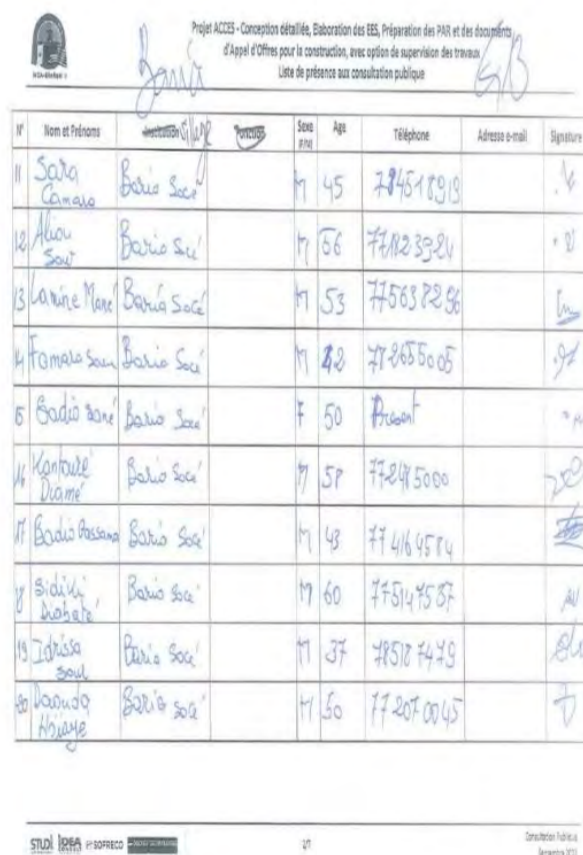 Projet ACCES - Conception détaillée, Elaboration des EES, Préparation des PAR et des documents
d'Appel d'Offres pour la construction, avec option de supervision des travaux
Liste de présence aux consultation publique
N° Nom et Prénoms Institution Village Fonction Sexe (F/M) Age Téléphone Adresse e-mail Signature
11 Sara Camara Baria Socé M 45 784518919
12 Aliou Sow Baria Socé M 56
13 Lamine Mané Baria Socé M 53 775638296
14 Famara Baria Socé M 42 772655005
15 Sadio Sané Baria Socé F 50 Present
16 Kantouré Dramé Baria Socé M 58
17 Badio Bassama Baria Socé M 43 774164584
18 Sidiki Diabaté Baria Socé M 60 775147537
19 Idrissa Baria Socé M 37 785187479
20 Daouda Baria Socé M 50 772070045
STUDI IDEA SOFRECO
2/7
Consultation Publique
Septembre 2022